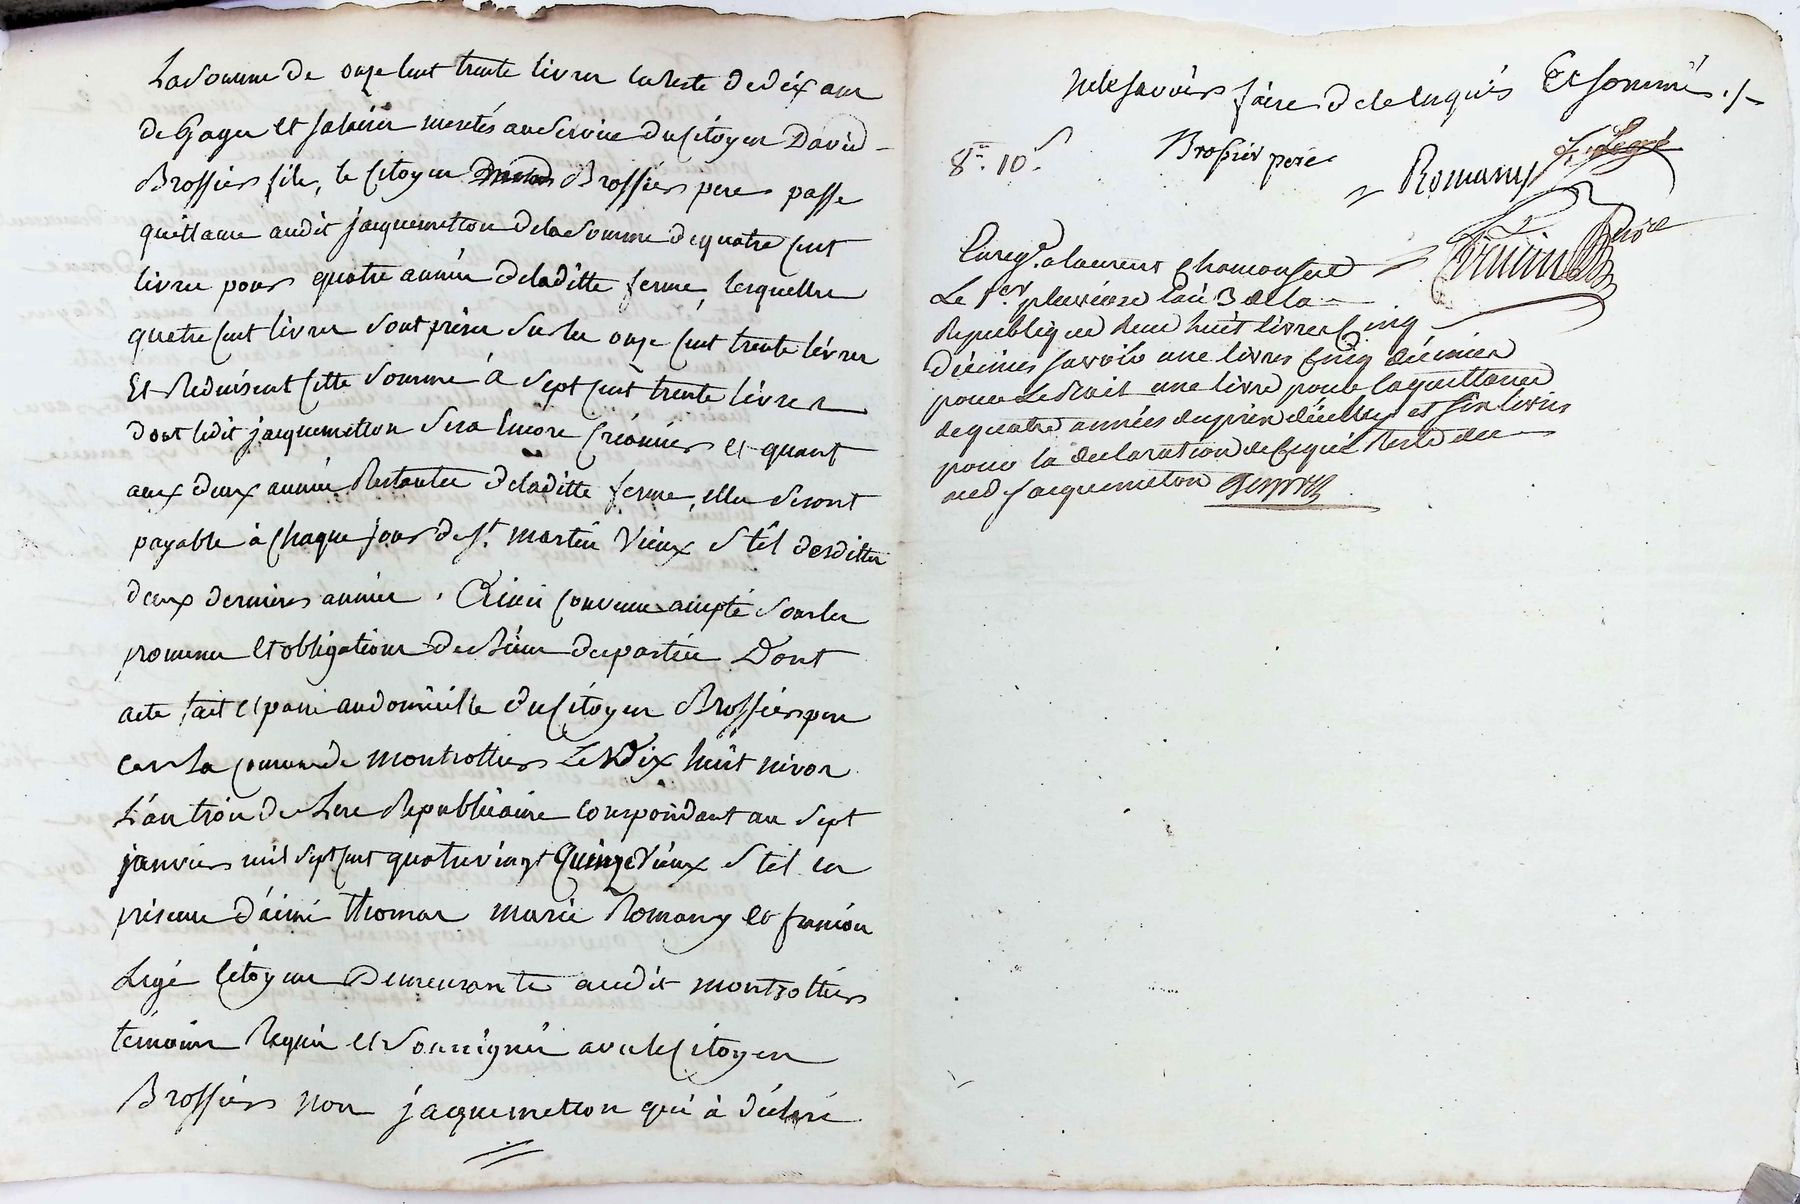 La Somme de onze Cent trente livres En Reste de dix ans
de Gages et Salaires merités au Service du Citoyen David
Brossier fils, le Citoyen Brossier pere passe
quittance audit jacquemetton de la Somme de quatre Cent
livres pour quatre années de laditte ferme, lesquelles
quatre Cent livres Sont prises Sur les onze Cent trente livres
Et Reduisent Cette Somme à Sept Cent trente livres
dont ledit jacquemetton Sera Encore Créancier et quant
aux deux années Restantes de laditte ferme, elles Seront
payable à Chaque jour de St. martin Vieux Stil desdittes
deux dernieres années. Ainsi Convenu accepté Sous les
promesses Et obligations de biens des parties Dont
acte fait et passé au domicille du Citoyen Brossier pere
en la Commune de montrottier Le Dix huit nivos
L'an trois de L'ere Republicaine Correspondant au Sept
janvier mil Sept Cent quatrevingt Quinze Vieux Stil en
présence d'aimé thomas marie Romany et françois
Legé Citoyens Demeurants audit montrottier
temoins Requis et Soussignés avec le Citoyen
Brossier non jacquemetton qui à déclaré
ne le Savoir faire de ce Enquis Et Sommé ./.
8ll. 10s
Brossier pere
Romany
f. Legé
Enregé. a Laurent Chamousset
Le 1er pluviose L'an 3 de la
Republique Reçu huit livres Cinq
Décimes savoir une livres Cinq décimes
pour Le Bail une livre pour la quittance
de quatre années du prix d'icelluy et six livres
pour la declaration de ce qui Reste du
aud jacquemeton